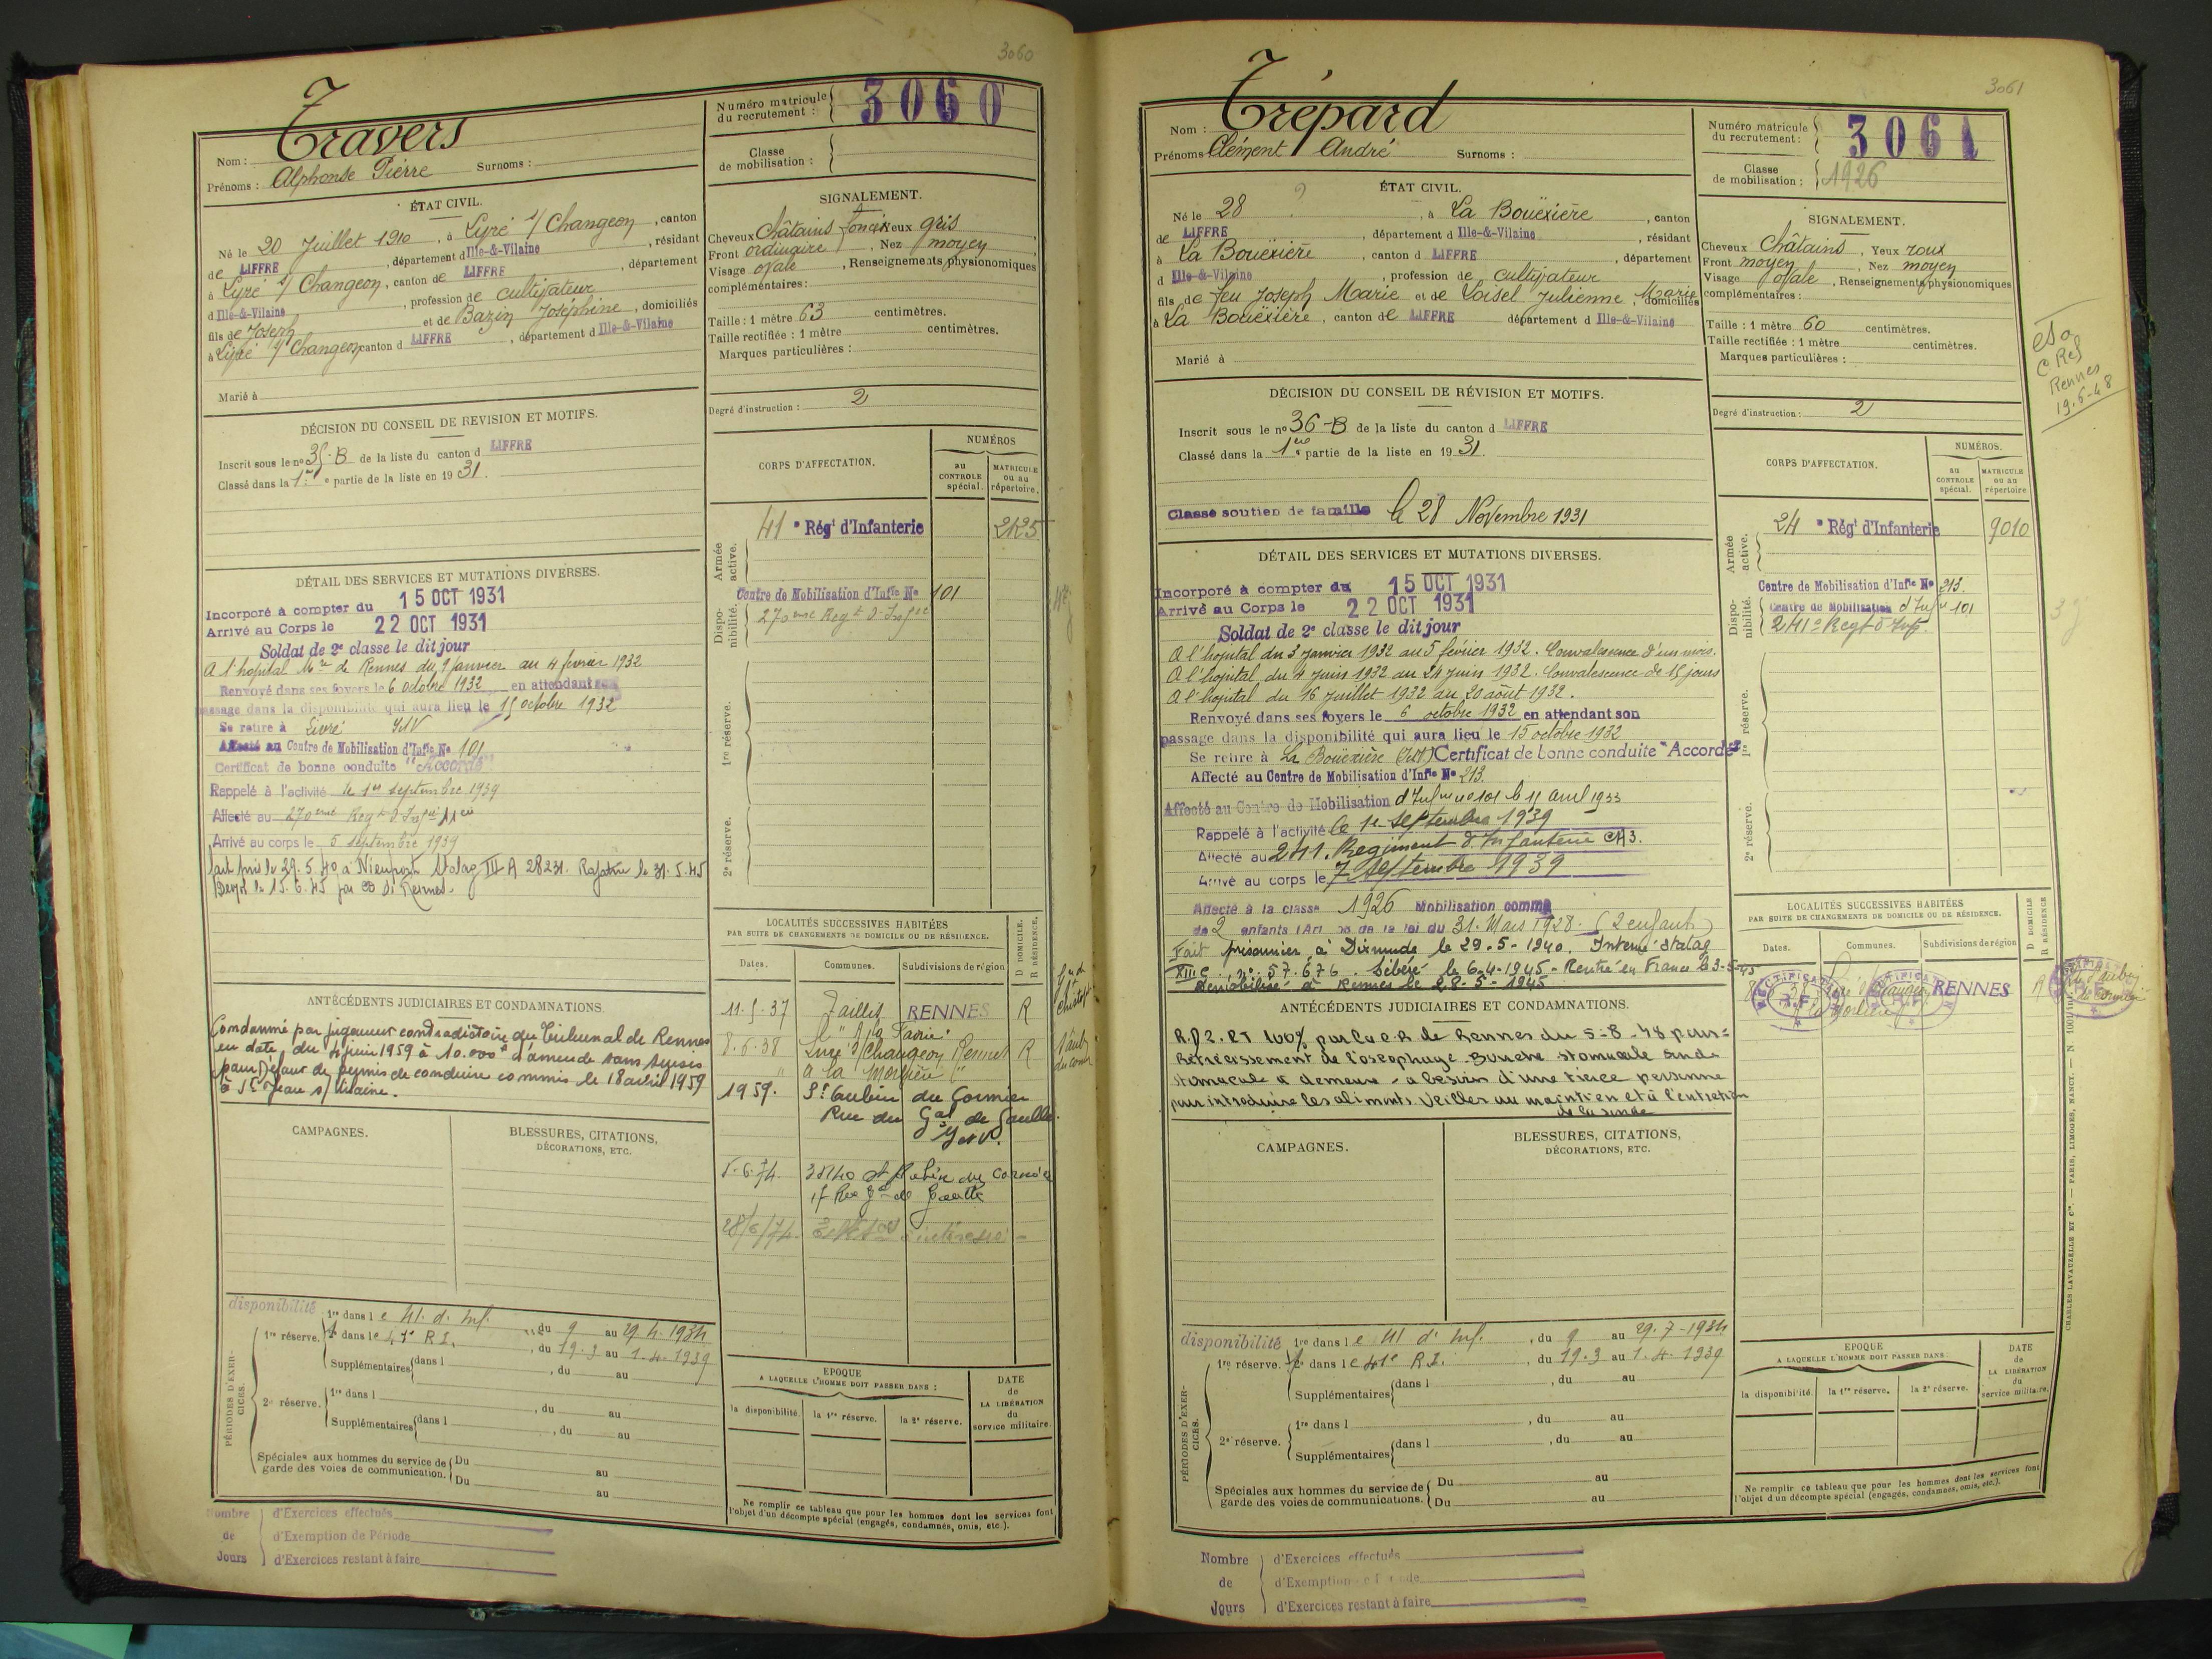 3060
Travers
Nom :
Prénoms : Alphonse Pierre Surnoms :
Numéro matricule du recrutement : 3060
Classe de mobilisation :
ÉTAT CIVIL.
Né le 20 Juillet 1910, à Livré s/ Changeon, canton
de LIFFRE, département d Ille-&-Vilaine, résidant
à Livré s/ Changeon, canton de LIFFRE, département
d Ille-&-Vilaine, profession de cultivateur
fils de Joseph et de Bazin Joséphine, domiciliés
à Livré s/ Changeon canton d LIFFRE, département d Ille-&-Vilaine
Marié à
SIGNALEMENT.
Cheveux Châtains foncés Yeux gris
Front ordinaire, Nez moyen
Visage ovale, Renseignements physionomiques
complémentaires :
Taille : 1 mètre 63 centimètres.
Taille rectifiée : 1 mètre centimètres.
Marques particulières :
Degré d'instruction : 2
DÉCISION DU CONSEIL DE REVISION ET MOTIFS.
Inscrit sous le no 35-B de la liste du canton d LIFFRE
Classé dans la 1re partie de la liste en 1931.
CORPS D'AFFECTATION.
NUMÉROS
au CONTROLE spécial.
MATRICULE ou au répertoire.
Armée active.
41e Régt d'Infanterie 2425
Disponibilité.
Centre de Mobilisation d'Infie No 101
270eme Regt d'Infie
1re réserve.
2e réserve.
DÉTAIL DES SERVICES ET MUTATIONS DIVERSES.
Incorporé à compter du 15 OCT 1931
Arrivé au Corps le 22 OCT 1931
Soldat de 2e classe le dit jour
A l'hopital Mre de Rennes du 9 janvier au 4 février 1932
Renvoyé dans ses foyers le 6 octobre 1932 en attendant son
passage dans la disponibilité qui aura lieu le 15 octobre 1932
Se retire à Livré I&V
Affecté au Centre de Mobilisation d'Infie No 101
Certificat de bonne conduite "Accordé"
Rappelé à l'activité le 1er septembre 1939
Affecté au 270eme Regt d'Infie
Arrivé au corps le 5 septembre 1939
Fait pris le 29.5.40 à Nieuport Stalag III A 28231. Rapatrié le 31.5.45
le 15.6.45 par de Rennes.
LOCALITÉS SUCCESSIVES HABITÉES
PAR SUITE DE CHANGEMENTS DE DOMICILE OU DE RÉSIDENCE.
Dates. Communes. Subdivisions de région D DOMICILE. R RÉSIDENCE.
11.5.37 Taillis RENNES R
8.6.38 Livré s/ Changeon Rennes R
" à la Morlière "
1959. St Aubin du Cormier
Rue du Gal de Gaulle
I et V.
5.6.74 35140 St Aubin du Cormier
17 Rue Gal de Gaulle
28/6/74
ANTÉCÉDENTS JUDICIAIRES ET CONDAMNATIONS.
Condamné par jugement contradictoire du Tribunal de Rennes
en date du 4 juin 1959 à 10.000 F d'amende sans sursis
pour Défaut de permis de conduire commis le 18 avril 1959
à St Jean s/ Vilaine.
CAMPAGNES.
BLESSURES, CITATIONS,
DÉCORATIONS, ETC.
disponibilité
PÉRIODES D'EXERCICES.
1re réserve. 1re dans le 41. d'Inf. du 9 au 29 4.1934
2e dans le 41e R.I., du 19.3 au 1.4.1939
Supplémentaires dans l , du au
2e réserve. 1re dans l , du au
Supplémentaires dans l , du au
Spéciales aux hommes du service de garde des voies de communication. Du au
Du au
EPOQUE
A LAQUELLE L'HOMME DOIT PASSER DANS :
la disponibilité. la 1re réserve. la 2e réserve.
DATE de LA LIBÉRATION du service militaire.
Ne remplir ce tableau que pour les hommes dont les services font
l'objet d'un décompte spécial (engagés, condamnés, omis, etc.).
Nombre de Jours
d'Exercices effectués
d'Exemption de Période
d'Exercices restant à faire
3061
Trépard
Nom :
Prénoms Clément André Surnoms :
Numéro matricule du recrutement : 3061
Classe de mobilisation : 1926
ÉTAT CIVIL.
Né le 28 ?, à La Bouëxière, canton
de LIFFRE, département d Ille-&-Vilaine, résidant
à La Bouëxière, canton d LIFFRE, département
d Ille-&-Vilaine, profession de cultivateur
fils de feu Joseph Marie et de Loisel Julienne Marie, domiciliés
à La Bouëxière, canton de LIFFRE département d Ille-&-Vilaine
Marié à
SIGNALEMENT.
Cheveux Châtains, Yeux roux
Front moyen, Nez moyen
Visage ovale, Renseignements physionomiques
complémentaires :
Taille : 1 mètre 60 centimètres.
Taille rectifiée : 1 mètre centimètres.
Marques particulières :
Degré d'instruction : 2
C Ref
Rennes
19.6-48
DÉCISION DU CONSEIL DE RÉVISION ET MOTIFS.
Inscrit sous le no 36-B de la liste du canton d LIFFRE
Classé dans la 1re partie de la liste en 1931.
Classé soutien de famille le 28 Novembre 1931
CORPS D'AFFECTATION.
NUMÉROS.
au CONTROLE spécial.
MATRICULE ou au répertoire
Armée active.
24e Régt d'Infanterie 9010
Disponibilité.
Centre de Mobilisation d'Infie No 213.
Centre de Mobilisation d'Infie 101
241e Regt d'Inf.
1re réserve.
2e réserve.
DÉTAIL DES SERVICES ET MUTATIONS DIVERSES.
Incorporé à compter du 15 OCT 1931
Arrivé au Corps le 22 OCT 1931
Soldat de 2e classe le dit jour
A l'hopital du 3 janvier 1932 au 5 février 1932. Convalescence d'un mois.
A l'hopital du 4 juin 1932 au 24 juin 1932. Convalescence de 15 jours
A l'hopital du 16 juillet 1932 au 20 août 1932.
Renvoyé dans ses foyers le 6 octobre 1932 en attendant son
passage dans la disponibilité qui aura lieu le 15 octobre 1932
Se retire à La Bouëxière (I&V) Certificat de bonne conduite "Accordé"
Affecté au Centre de Mobilisation d'Infie No 213.
Affecté au Centre de Mobilisation d'Infie no 101 le 11 avril 1933
Rappelé à l'activité le 1er Septembre 1939
Affecté au 241e Régiment d'Infanterie
Arrivé au corps le 7 Septembre 1939
Affecté à la classe 1926 Mobilisation comme
de 2 enfants (Art 58 de la loi du 31. Mars 1928. (2 enfants)
Fait prisonnier à Dixmude le 29-5-1940. Interné Stalag
XIII C. no. 57.676. Libéré le 6-4-1945 - Rentré en France le 3-5-45
Démobilisé à Rennes le 28-5-1945
LOCALITÉS SUCCESSIVES HABITÉES
PAR SUITE DE CHANGEMENTS DE DOMICILE OU DE RÉSIDENCE.
Dates. Communes. Subdivisions de région D DOMICILE R RÉSIDENCE
RECTIFICATIF R.F.
RENNES R
ANTÉCÉDENTS JUDICIAIRES ET CONDAMNATIONS.
R.D2. PT 100% par la C.R de Rennes du 5-8-48 pour =
Rétrécissement de l'oesophage - Bouche stomacale sonde
stomacale à demeure - a besoin d'une tierce personne
pour introduire les aliments veiller au maintien et à l'entretien
de la sonde
CAMPAGNES.
BLESSURES, CITATIONS,
DÉCORATIONS, ETC.
disponibilité
PÉRIODES D'EXERCICES.
1re réserve. 1re dans le 41 d'Inf., du 9 au 29.7-1934
2e dans le 41e R.I., du 19.3 au 1.4.1939
Supplémentaires dans l , du au
2e réserve. 1re dans l , du au
Supplémentaires dans l , du au
Spéciales aux hommes du service de garde des voies de communications. Du au
Du au
EPOQUE
A LAQUELLE L'HOMME DOIT PASSER DANS :
la disponibilité. la 1re réserve. la 2e réserve.
DATE de LA LIBÉRATION du service militaire.
Ne remplir ce tableau que pour les hommes dont les services font
l'objet d'un décompte spécial (engagés, condamnés, omis, etc.).
CHARLES LAVAUZELLE ET Cie. — PARIS, LIMOGES, NANCY.
Nombre de Jours
d'Exercices effectués
d'Exemption de Période
d'Exercices restant à faire